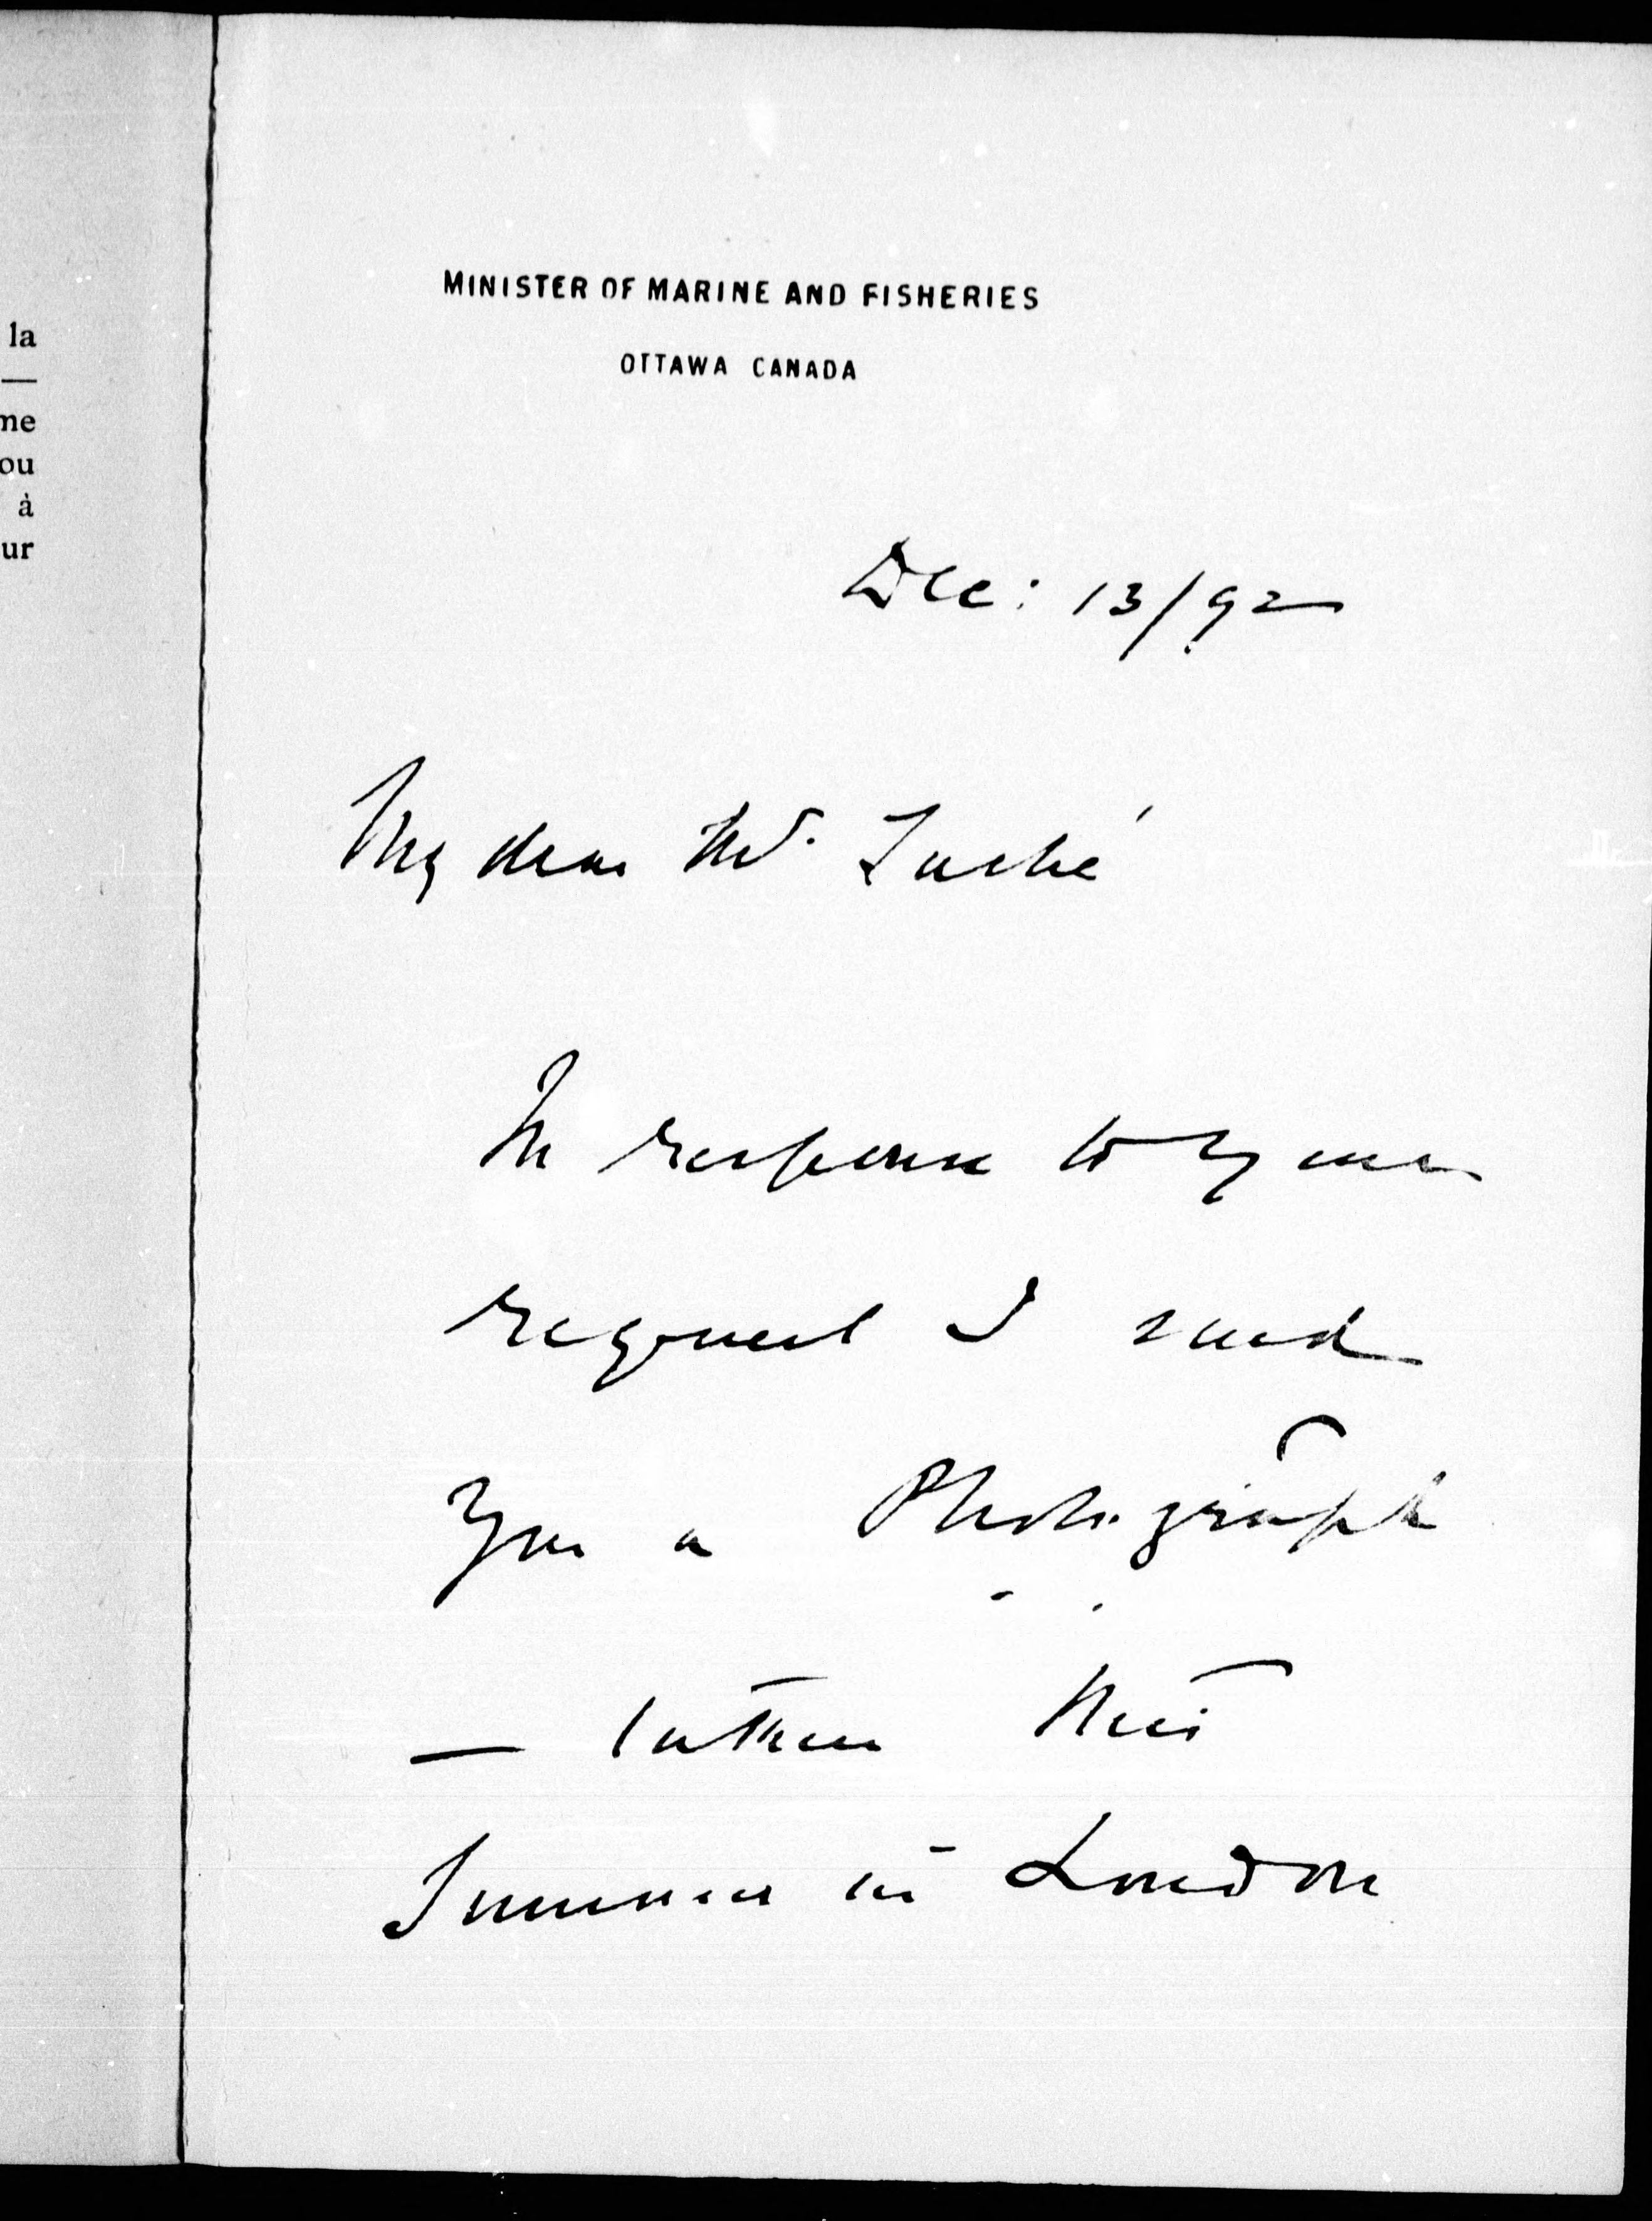 la
—
me
ou
à
ur
MINISTER OF MARINE AND FISHERIES
OTTAWA CANADA
Dec: 13/92
My dear Mr. Taché
In response to your
request I send
you a Photograph
— taken this
Summer in London